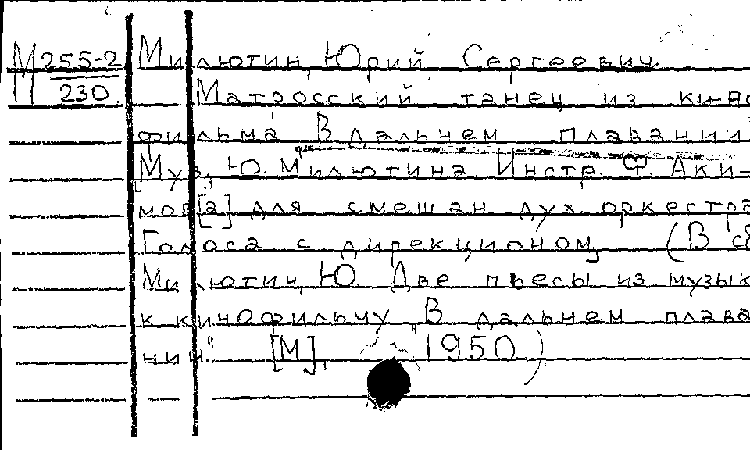 М 255-2 Милютин, Юрий Сергеевич.
230 Матросский танец из кино-
фильма „В дальнем плавании".
Муз. Ю. Милютина. Инстр. Ф. Аки-
мов[а] для смешан. дух. оркестра
Голоса с дирекционом. (В сб.
Милютин, Ю. Две пьесы из музык
к кинофильму „В дальнем плава-
нии". [М], 1950)